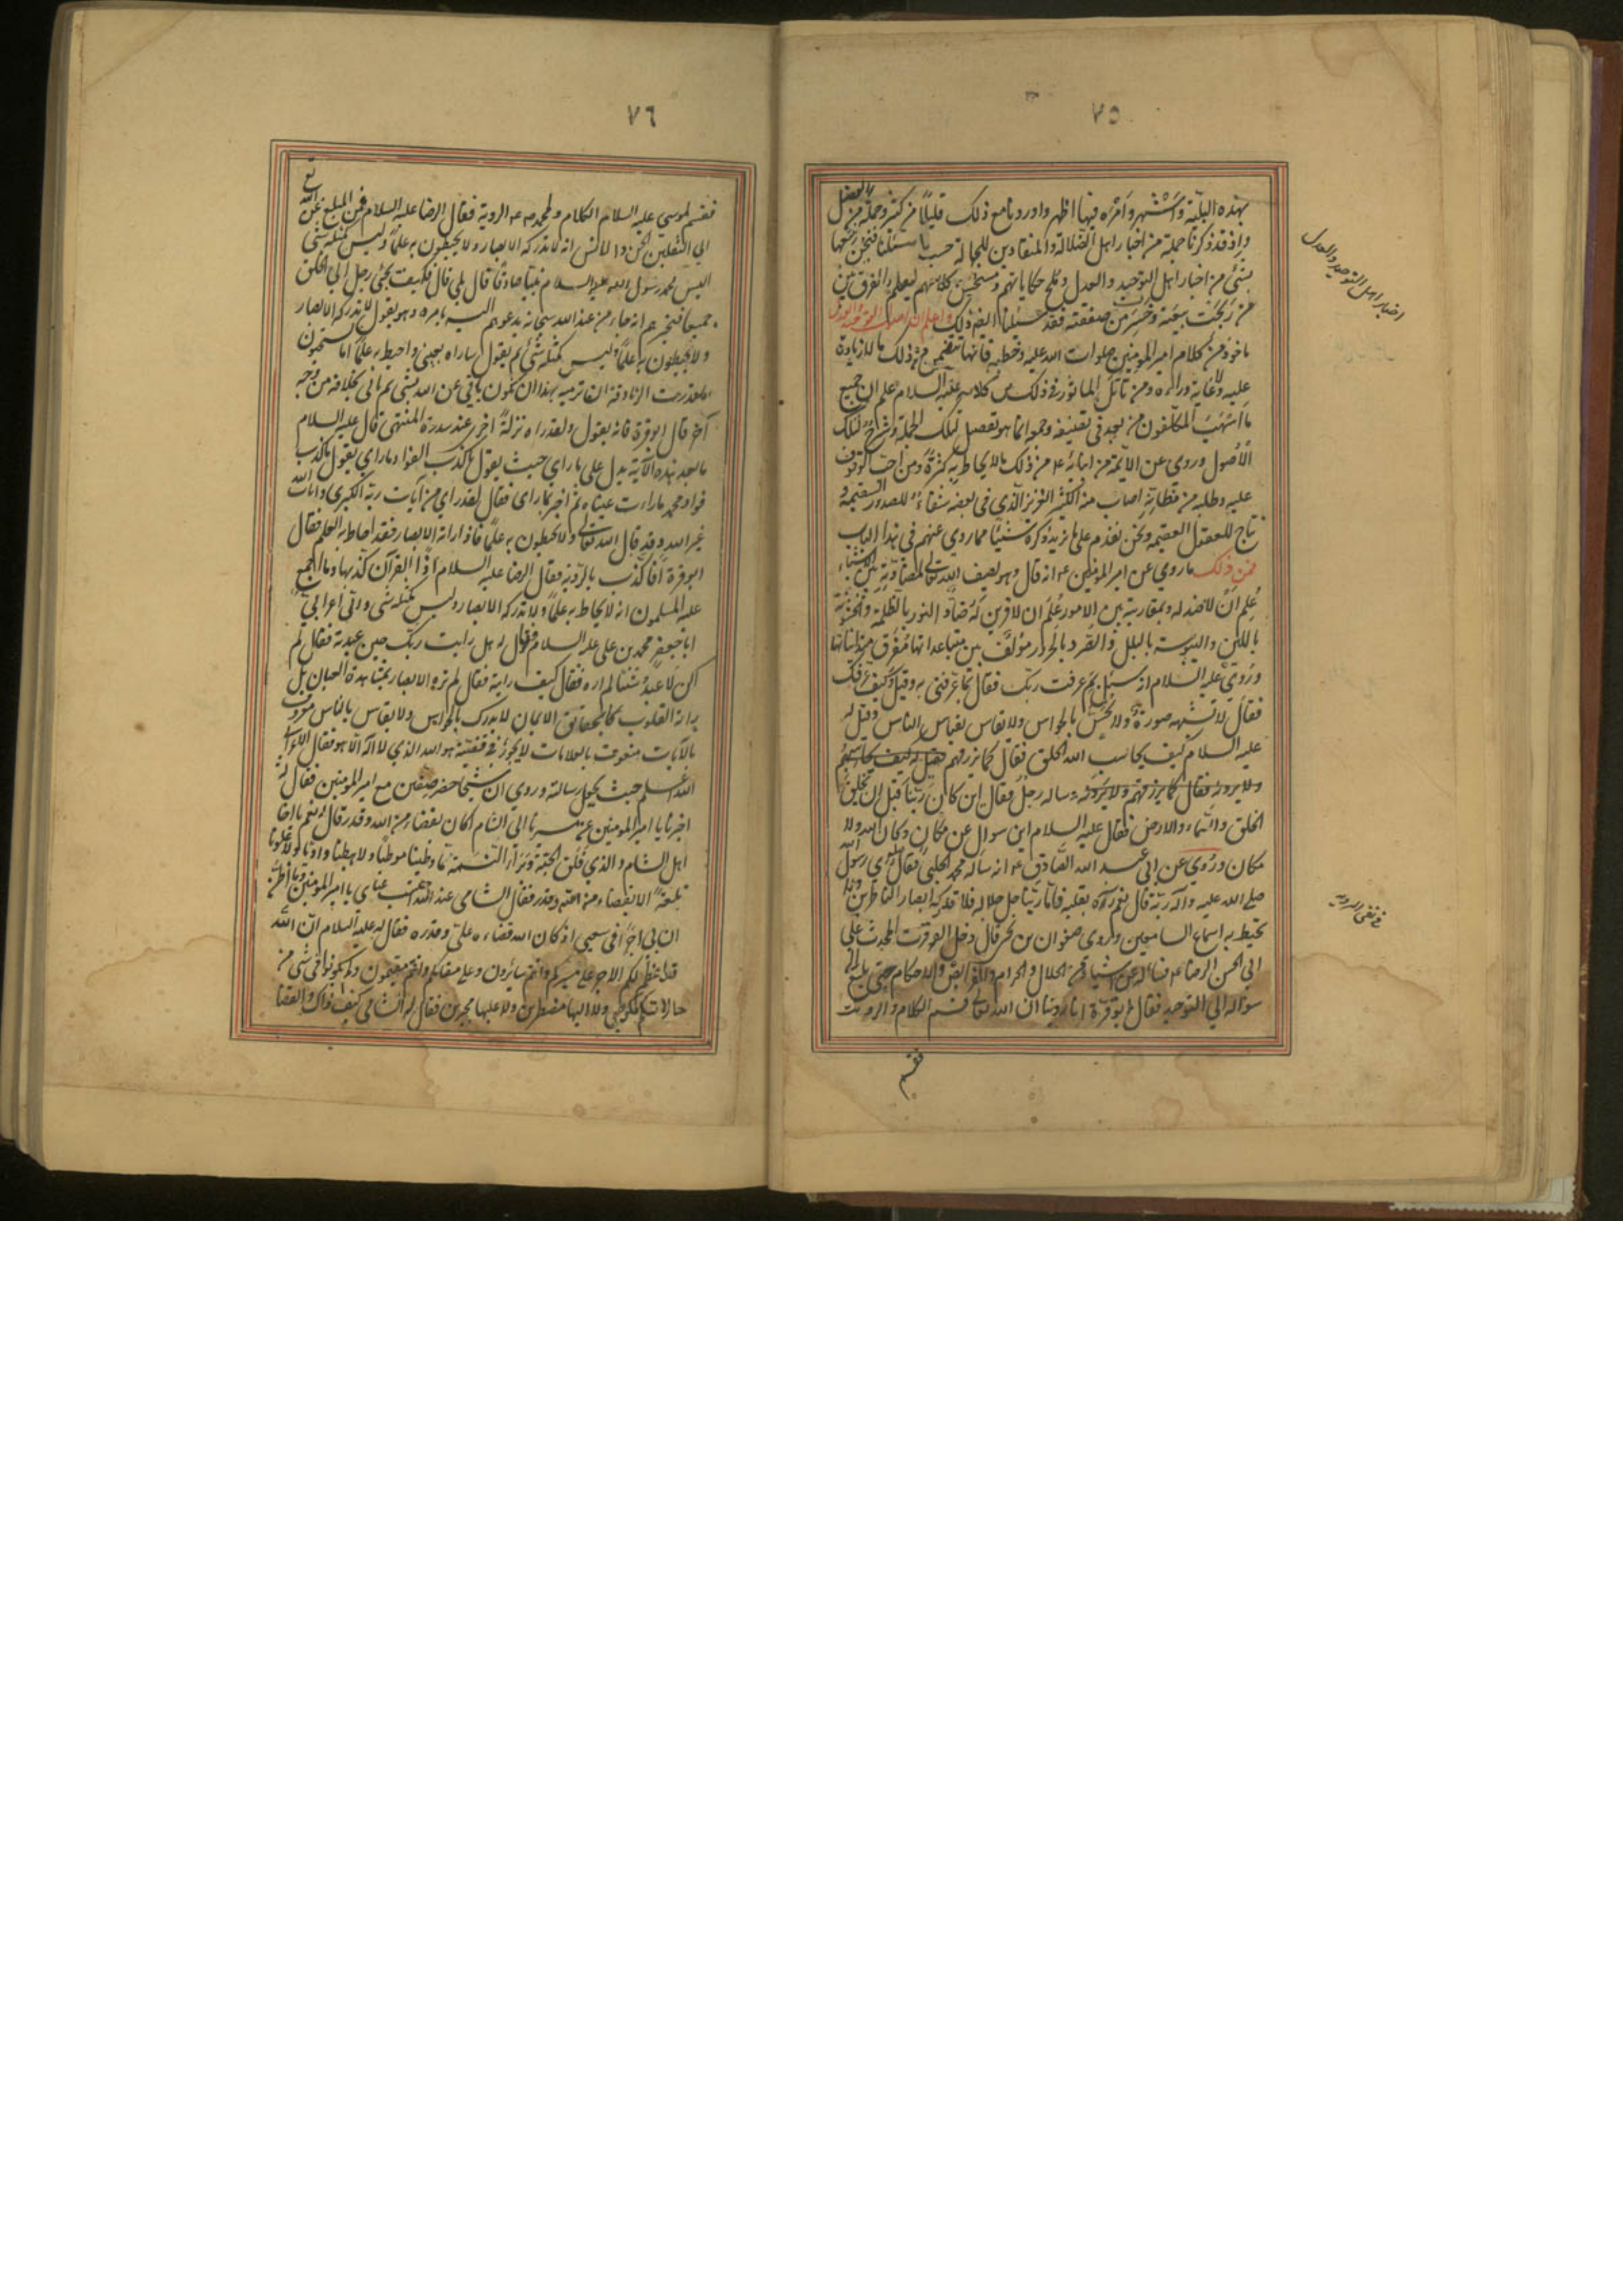 ٧٥
بهذه البليّة واشتهر وأمره فيها اظهر واوردنا مع ذلك قليلًا من كثير وجملة من
واذ قد ذكرنا جملة من اخبار اهل الضلالة والمنقادين للجهالة حسب ما سئلنا فنحن نتبعها
بشئ من اخبار اهل التوحيد والعدل وملح حكاياتهم ومستحسن كلامهم ليعلم الفرق بين
من ربحت بيعته وخسرت صفقته فقد سئلنا ايضًا ذلك واعلم ان اصول التوحيد والعدل
ماخوذ من كلام امير المومنين صلوات الله عليه وخطبه فانها تتضمن من ذلك ما لا زيادة
عليه ولا غاية وراءه ومن تأمّل المأثور في ذلك من كلامه عليه السلام علم ان جميع
ما اسهب المتكلّفون من بعد في تصنيفه وجمعه انما هو تفصيل لتلك الجملة وشرح لتلك
الأصول وروي عن الائمة من ابنائه ع من ذلك ما لا يحاط به كثرةً ومن احبّ الوقوف
عليه وطلبه من مظانّه اصاب منه الكثير الغزير الذي في بعضه شفاء للصدور السقيمة و
نتاج للعقول العقيمة ونحن نقدّم على ما نريد ذكره شيئًا مما روي عنهم في هذا الباب
فمن ذلك ما روي عن امير المومنين ع انه قال وهو يصف الله تعالى بمضادّته بين الاشياء
عُلِم أنْ لا ضد له وبمقارنته بين الامور عُلِم ان لا قرين له ضادّ النور بالظلمة والخشونة
باللين واليبوسة بالبلل والصرد بالحرور مؤلّف بين متباعداتها مُفرّق بين متدانياتها
ورُوي عليه السلام انه سئل بم عرفت ربّك فقال بما عرّفني به وقيل وكيف عرّفك
فقال لا تشبهه صورة ولا يُحسّ بالحواس ولا يقاس بقياس الناس وقيل له
عليه السلام كيف يحاسب الله الخلق فقال كما يرزقهم فقيل له كيف يحاسبهم
ولا يرونه فقال كما يرزقهم ولا يرونه وساله رجل فقال اين كان ربّنا قبل ان يخلق
الخلق والسّماء والارض فقال عليه السلام اين سوال عن مكان وكان الله ولا
مكان ورُوي عن ابي عبد الله الصّادق ع انه ساله محمد الحلبي فقال له رأي رسول الله
صلى الله عليه وآله ربّه قال نعم رآه بقلبه فامّا ربّنا جل جلاله فلا تدركه ابصار الناظرين ولا
تحيط به اسماع السامعين وروي صفوان بن يحيى قال دخل ابو قرّة المحدث على
ابي الحسن الرضا ع فساله عن اشياء من الحلال والحرام والفرايض والاحكام حتى بلغ
سؤاله الي التوحيد فقال ابو قرّة انا روينا ان الله تعالى قسم الكلام والروية
فقسم
اخبار اهل التوحيد والعدل
في نفي الروية
٧٦
فقسم لموسى عليه السلام الكلام ولمحمد ص ع الروية فقال الرضا عليه السلام فمن المبلغ عن الله تع
الي الثقلين الجن والانس انه لا تدركه الابصار ولا يحيطون به علمًا وليس كمثله شئ
اليس محمد رسول الله عليه السلام نبيًا صادقًا قال بلي قال فكيف يجئ رجل الي الخلق
جميعا فيخبرهم انه جاء من عند الله سبحانه يدعوهم اليه بامره وهو يقول لا تدركه الابصار
ولا يحيطون به علمًا وليس كمثله شئ ثم يقول ساراه بعيني واحيط به علمًا اما تستحيون
ما قدرت الزنادقة ان ترميه بهذا ان يكون ياتي عن الله بشئ ثم ياتي بخلافه من وجه
آخر قال ابو قرة فانه يقول ولقد راه نزلةً اخرى عند سدرة المنتهى قال عليه السلام
ما بعد هذه الآية يدل على ما راي حيث يقول ما كذب الفواد ما راي يقول ما كذب
فواد محمد ما رات عيناه ثم اخبر بما راى فقال لقد راي من آيات ربّه الكبرى وايات الله
غير الله وقد قال الله تعالى ولا يحيطون به علمًا فاذا راته الابصار فقد احاط به العلم فقال
ابو قرة افاكذّب بالروية فقال الرضا عليه السلام اذا القرآن كذّبها وما اجمع
عليه المسلمون انه لا يحاط به علمًا ولا تدركه الابصار وليس كمثله شى وأتى أعرابيّ
ابا جعفر محمد بن علي عليه السلام فقال له هل رايت ربّك حين عبدته فقال لم
اكن لاعبد شيئا لم اره فقال كيف رايته فقال لم تره الابصار بمشاهدة العيان بل
راته القلوب بحقايق الايمان لا يدرك بالحواس ولا يقاس بالناس معروف
بالآيات منعوت بالعلامات لا يجوز في قضيّته هو الله الذي لا اله الا هو فقال الاعرابي
الله اعلم حيث يجعل رسالته وروي ان شيخًا حضر صفين مع امير المؤمنين فقال له
اخبرنا يا امير المومنين عن مسيرنا الي الشام اكان بقضاء من الله وقدر قال له نعم يا اخا
اهل الشام والذي فلق الحبّة وبرأ النسمة ما وطئنا موطئًا ولا هبطنا واديًا ولا علونا
تلعةً الا بقضاء من الله وقدر فقال الشامي عند الله احتسب عناي يا امير المومنين وما اظن
ان لي اجرًا في سعيي اذ كان الله قضاه علىّ وقدره فقال له عليه السلام انّ الله
قد اعظم لكم الاجر علي مسيركم وانتم سائرون وعلى مقامكم وانتم مقيمون ولم تكونوا في شي من
حالاتكم مكرهين ولا اليها مضطرين ولا عليها مجبرين فقال له الشامى كيف ذاك والقضا